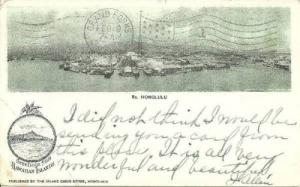 GRAND FORKS
8c. HONOLULU
Greetings from
HAWAIIAN ISLANDS
I did not think I would be
sending you a card from
this place. It is all very
wonderful and beautiful.
Helen
PUBLISHED BY THE ISLAND CURIO STORE, HONOLULU